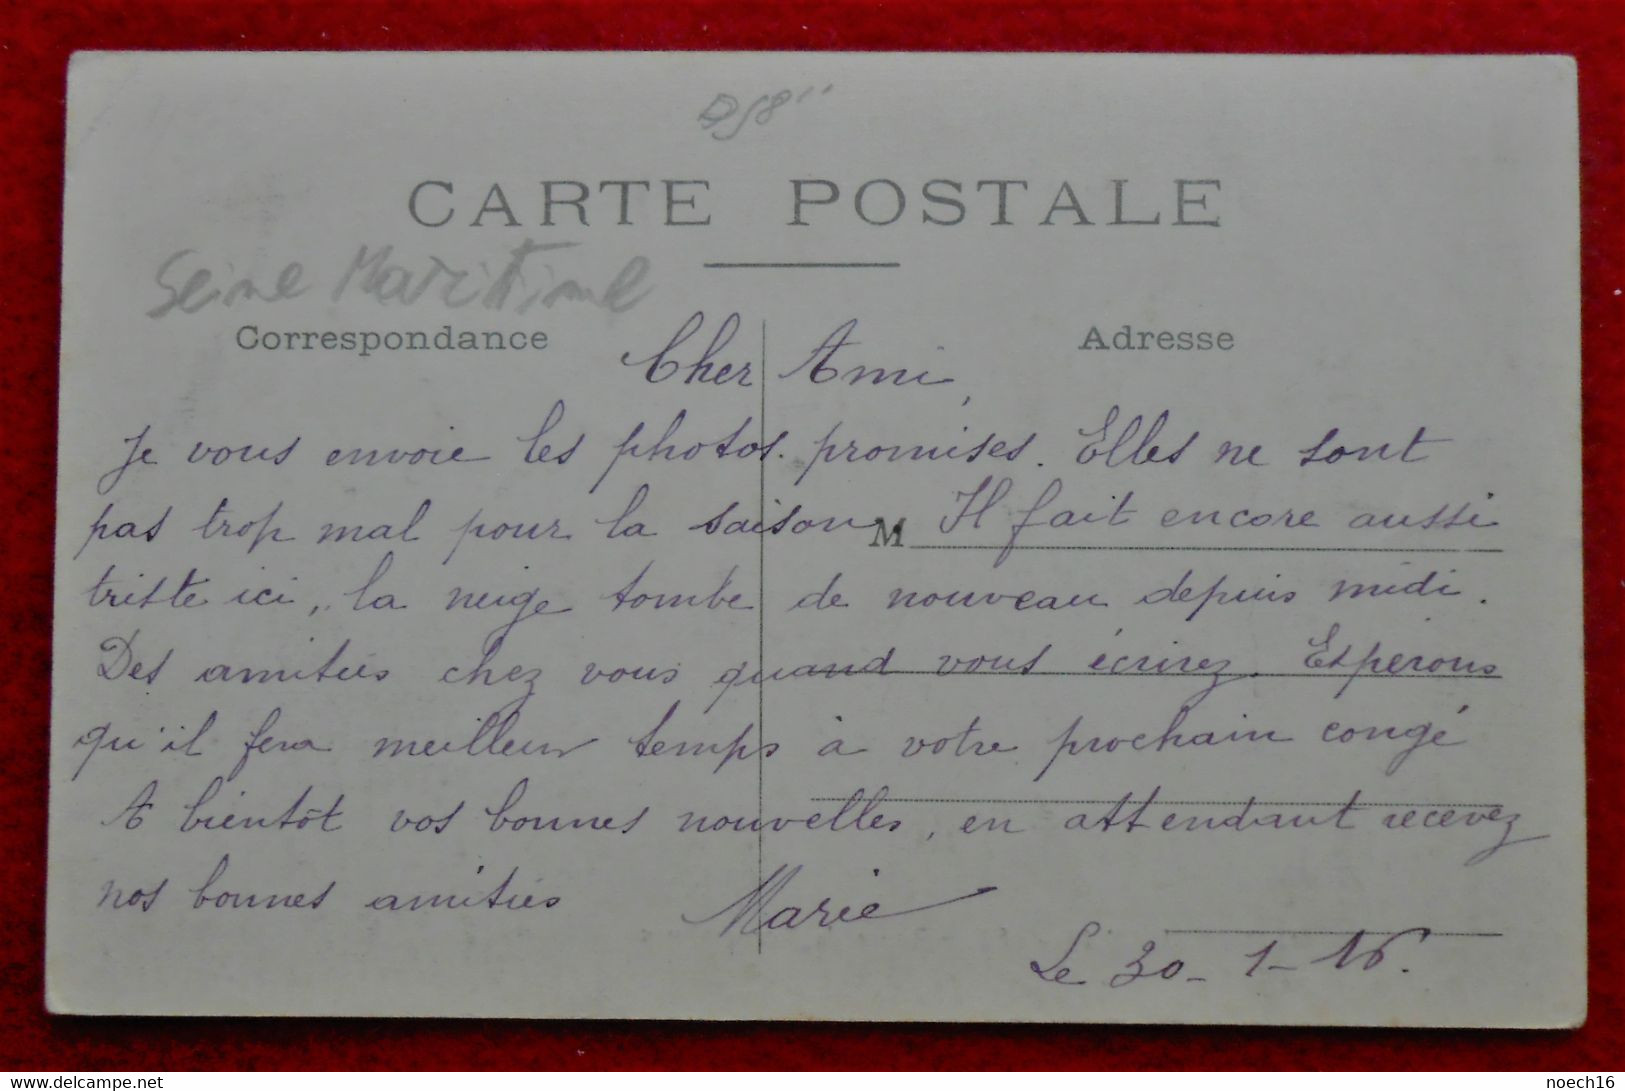 CARTE POSTALE
Seine Maritime
Correspondance
Adresse
Cher Ami,
Je vous envoie les photos promises. Elles ne sont
pas trop mal pour la saison M Il fait encore aussi
triste ici, la neige tombe de nouveau depuis midi.
Des amitiés chez vous quand vous écrirez. Espérons
qu'il fera meilleur temps à votre prochain congé
A bientôt vos bonnes nouvelles, en attendant recevez
nos bonnes amitiés Marie
Le 30-1-16.
delcampe.net
noech16